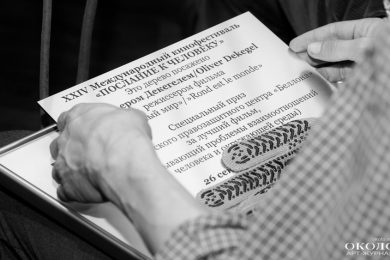 XXIV Международный кинофестиваль
«ПОСЛАНИЕ К ЧЕЛОВЕКУ»
Это дерево посажено
ером Декегелем/Oliver Dekegel
режиссером фильма
ый мир»/»Rond est le monde»
Специальный приз
ского правозащитного центра «Беллона»
за лучший фильм,
ывающий проблемы взаимоотношений
человека и окружающей среды)
26 се
ОКОЛО
АРТ-ЖУРНАЛ